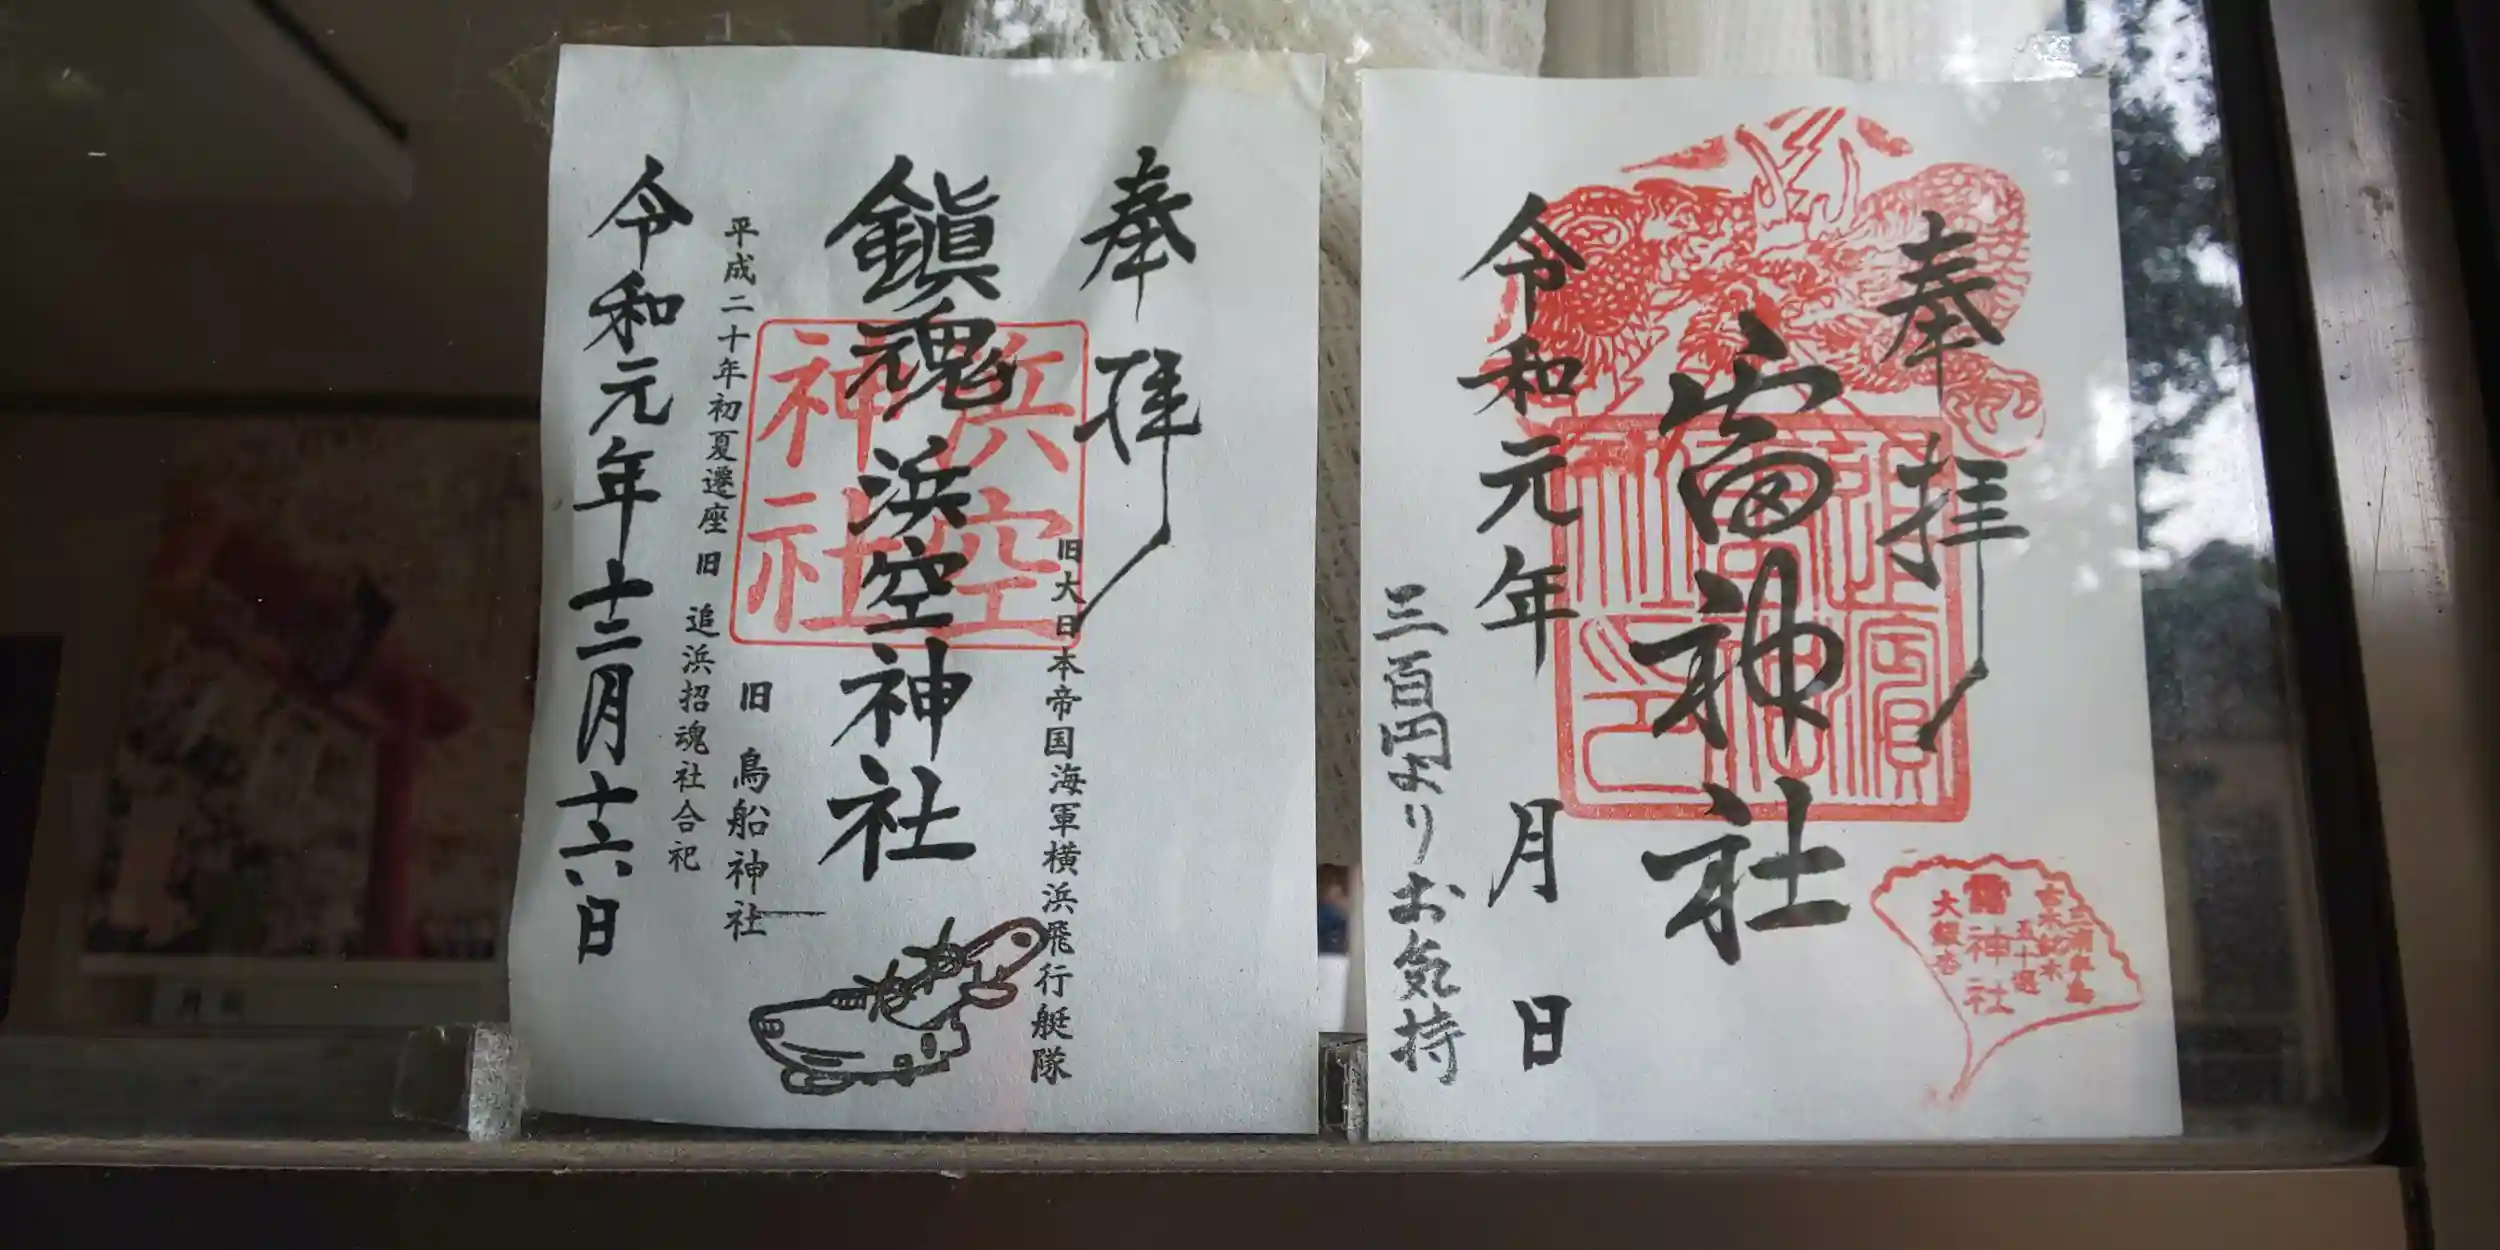 奉拝
追濱
雷神
社印
雷神社
令和元年 月 日
三百円よりお気持
三浦半島
古木銘木
五十選
雷神社
大銀杏
奉拝
旧大日本帝国海軍横浜飛行艇隊
鎭魂 浜空神社
浜空
神社
旧 鳥船神社
平成二十年初夏遷座 旧 追浜招魂社合祀
令和元年十二月十六日